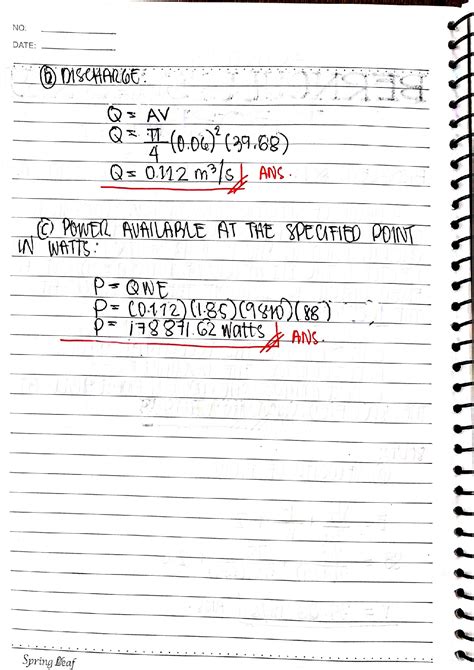 NO.
DATE:
(b) DISCHARGE:
Q = AV
Q = π/4 (0.06)² (39.68)
Q = 0.112 m³/s ANS.
(c) POWER AVAILABLE AT THE SPECIFIED POINT
IN WATTS:
P = QWE
P = (0.112)(1.85)(9810)(88)
P = 178871.62 Watts ANS.
Spring Leaf